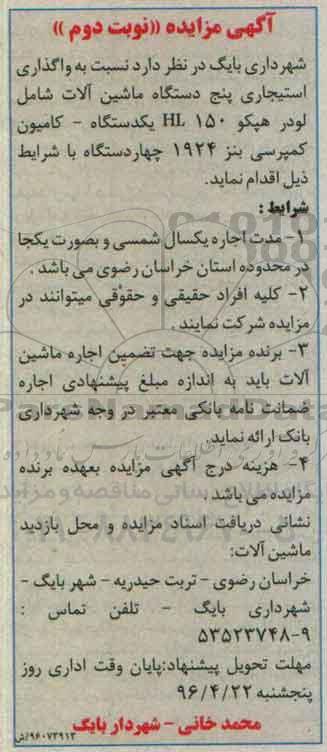 آگهی مزایده ((نوبت دوم ))
شهرداری بایگ در نظر دارد نسبت به واگذاری
استیجاری پنج دستگاه ماشین آلات شامل
لودر هپکو HL ۱۵۰ یکدستگاه - کامیون
کمپرسی بنز ۱۹۲۴ چهاردستگاه با شرایط
ذیل اقدام نماید.
شرایط :
۱- مدت اجاره یکسال شمسی و بصورت یکجا
در محدوده استان خراسان رضوی می باشد .
۲- کلیه افراد حقیقی و حقوقی میتوانند در
مزایده شرکت نمایند .
۳- برنده مزایده جهت تضمین اجاره ماشین
آلات باید به اندازه مبلغ پیشنهادی اجاره
ضمانت نامه بانکی معتبر در وجه شهرداری
بانک ارائه نماید.
۴- هزینه درج آگهی مزایده بعهده برنده
مزایده می باشد .
نشانی دریافت اسناد مزایده و محل بازدید
ماشین آلات:
خراسان رضوی - تربت حیدریه - شهر بایگ -
شهرداری بایگ - تلفن تماس :
۵۳۵۲۳۷۴۸-۹
مهلت تحویل پیشنهاد:پایان وقت اداری روز
پنجشنبه ۹۶/۴/۲۲
محمد خانی - شهردار بایگ
۹۶۰۷۳۹۱۲/ش